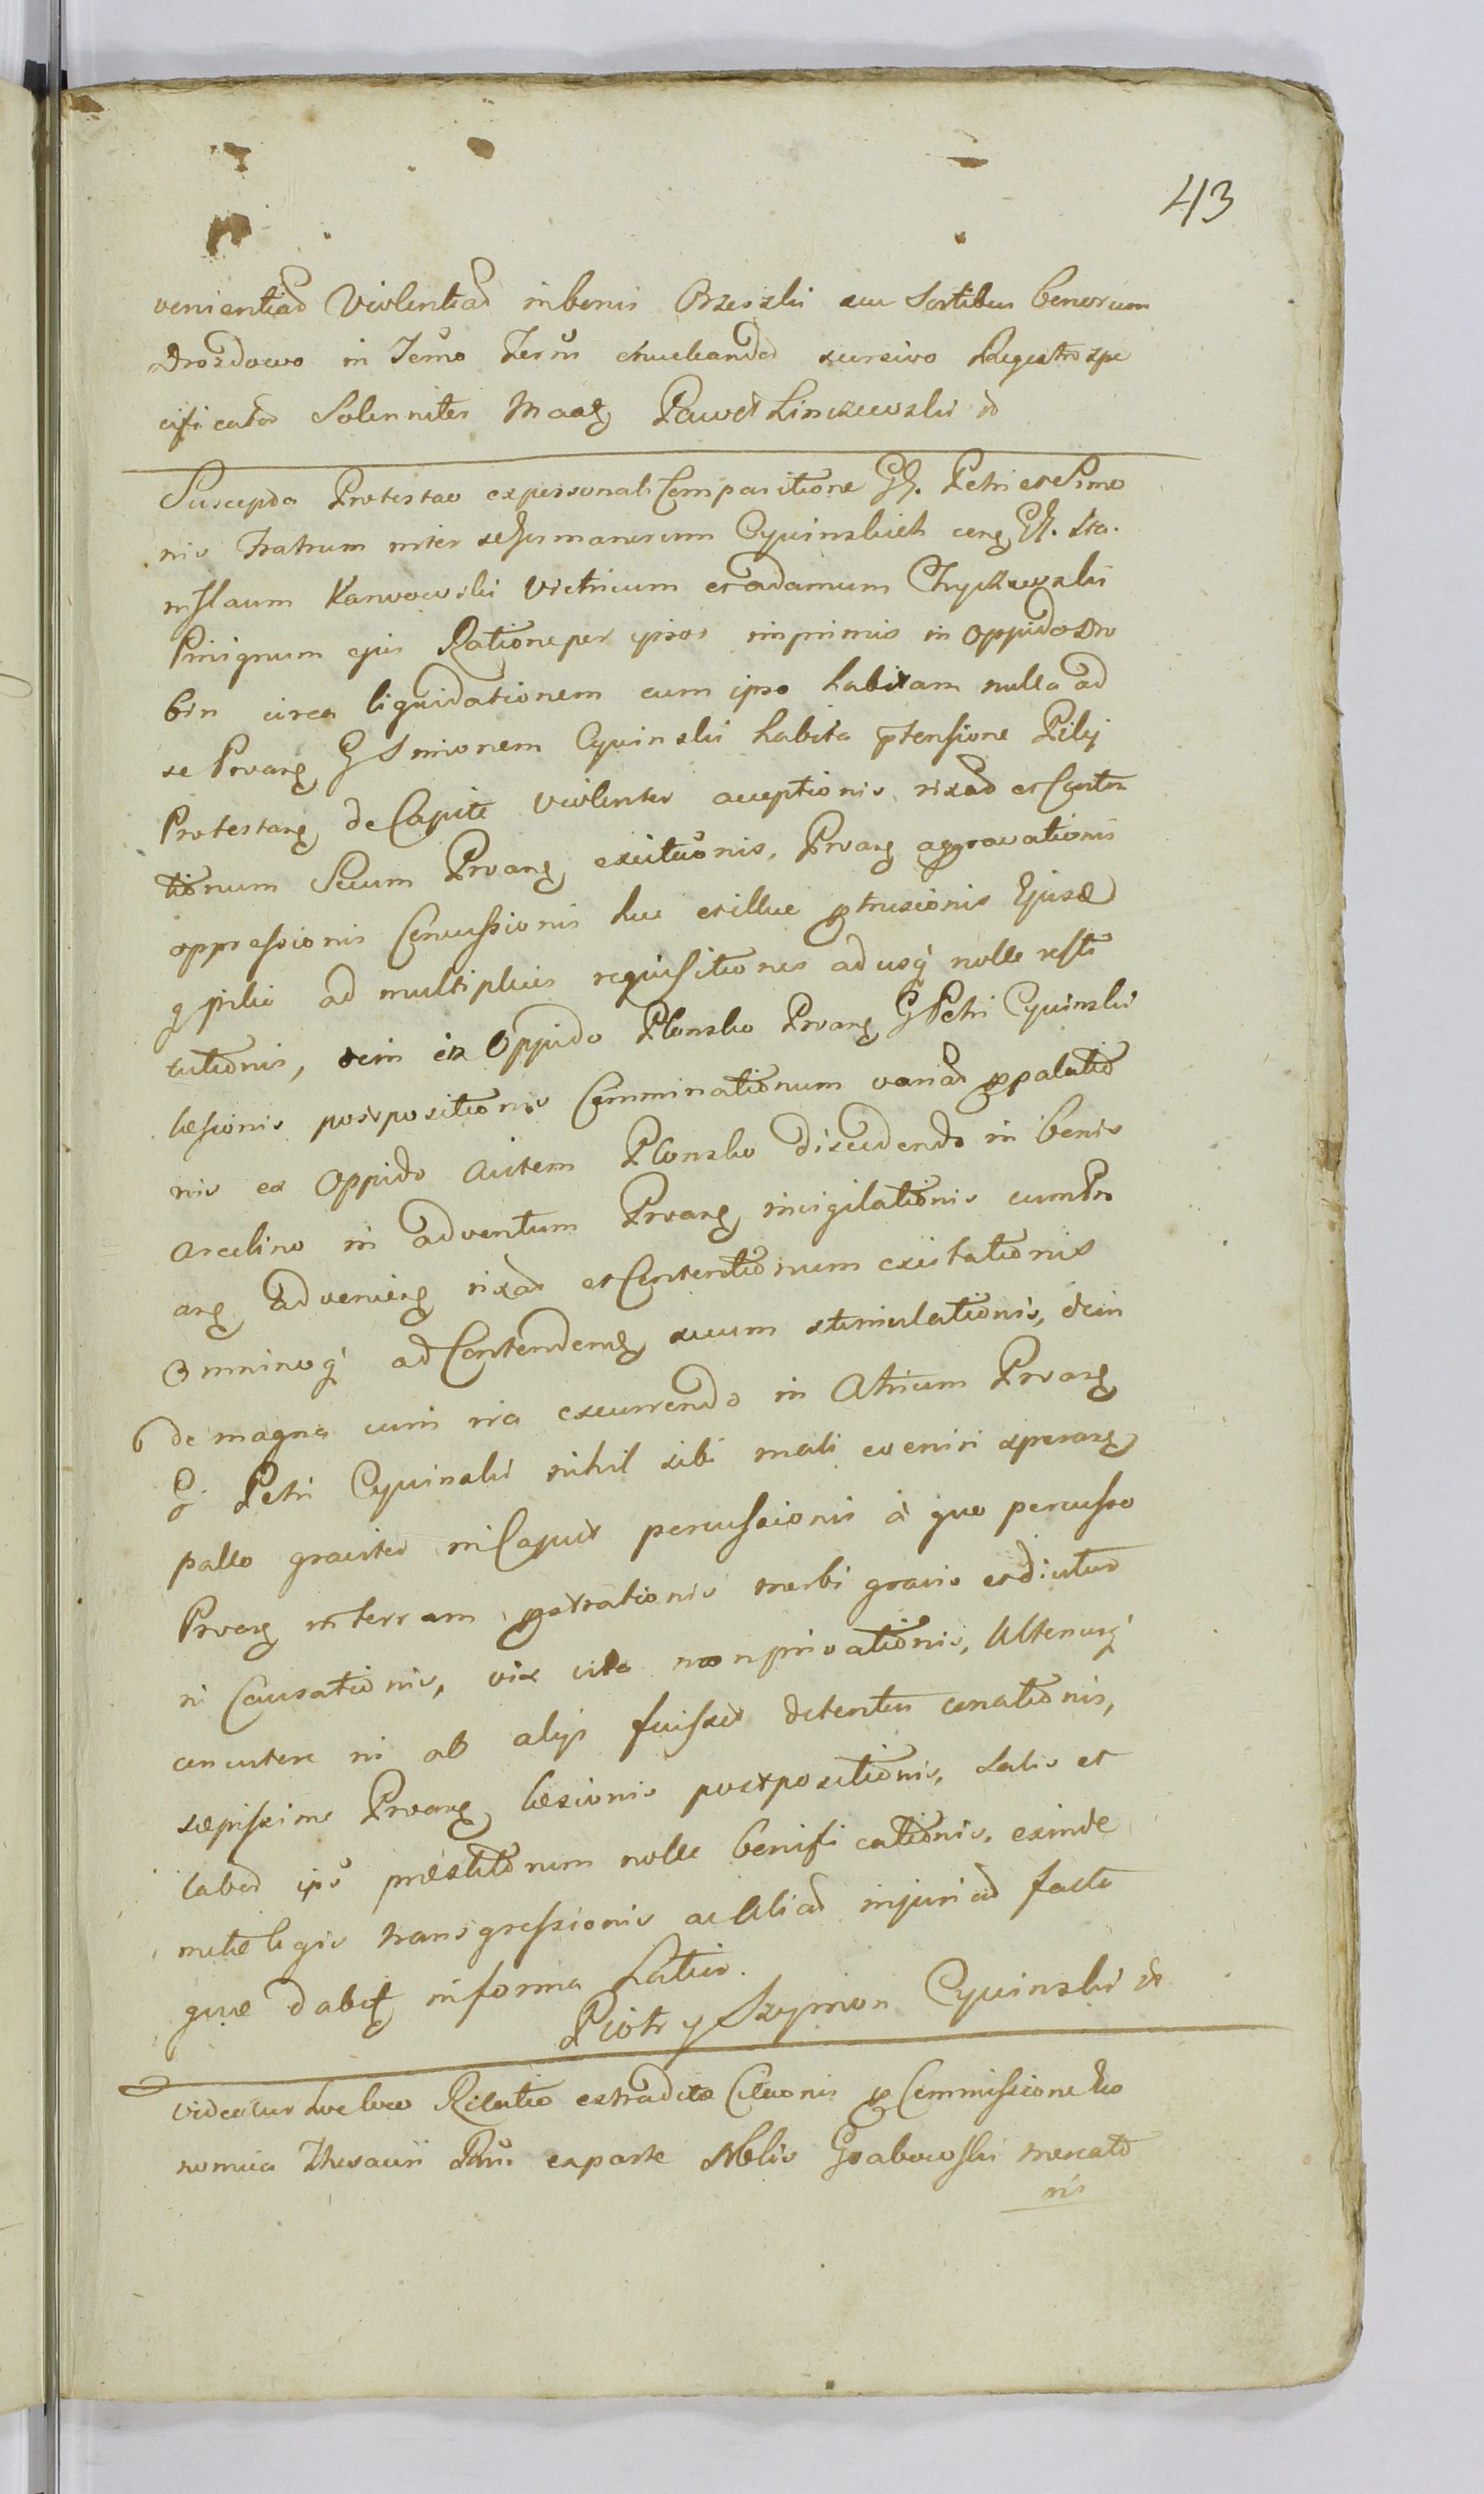 43
venientiad Violentiad in bonis Orzeszki seu Sortibus bonorum
Drozdowo in Termo cursivo Regestro spe
cificatod Solenniter Paweł
Suscepta Protestao ex personali Comparitione GG. Petri et Simo
nis Fratrum inter se germanorum Cywinskich cong GG. Sta
nislaum Karwowski Vitricum et adamum Chyczewski
Privignum ejus Ratione per ipsos inprimis in Oppido Dro
bin circa liquidationem cum ipso habitam nulla ad
se Proang G Simonem Cywinski habita ptensione Pilej
Protestang de Capite violenter acceptionis, rixad et Conten
tionum Secum Proang excitaonis, Proang aggravationis
oppressionis Concussionis huc et illuc ptrusionis Ejusd
q pilei ad multiplices requisitiones ad usq nolle resti
tutionis, dein in Oppido Plonsko Proang G Petri Cywinski
læsionis postpositionis Comminationum variad ppalatio
nis ex Oppido autem Plonsko discedendo in bonis
Arcelino in adventum Proang invigilationis cum Pro
ang advenieng rixad et Contentionum excitationis
Omninoq ad Contendend secum stimulationis, dein
de magna cum ira excurrendo in Atrium Proang
G Petri Cywinski nihil sibi mali eveniri sperang
pallo graviter in Caput percussionis à quo percusso
Proang in terram pstrationis morbi gravis et diuturd
ni Causationis, vix vita non privationis, Ulteriusq
concutere ni ab alijs fuisset detentus conationis,
sæpissime Proang læsionis postpositionis, datis et
labod ipso præstitorum nolle bonificationis, exinde
metæ legis transgressionis ac aliad injuriad facto
que dabit in forma Latius.
Piotr y Szymon Cywinski
Videatur hoc loco Relatio extraditæ Citaonis p Commissione Eco
nomica Thesauri ex parte Nblis Grabowski mercato
ris